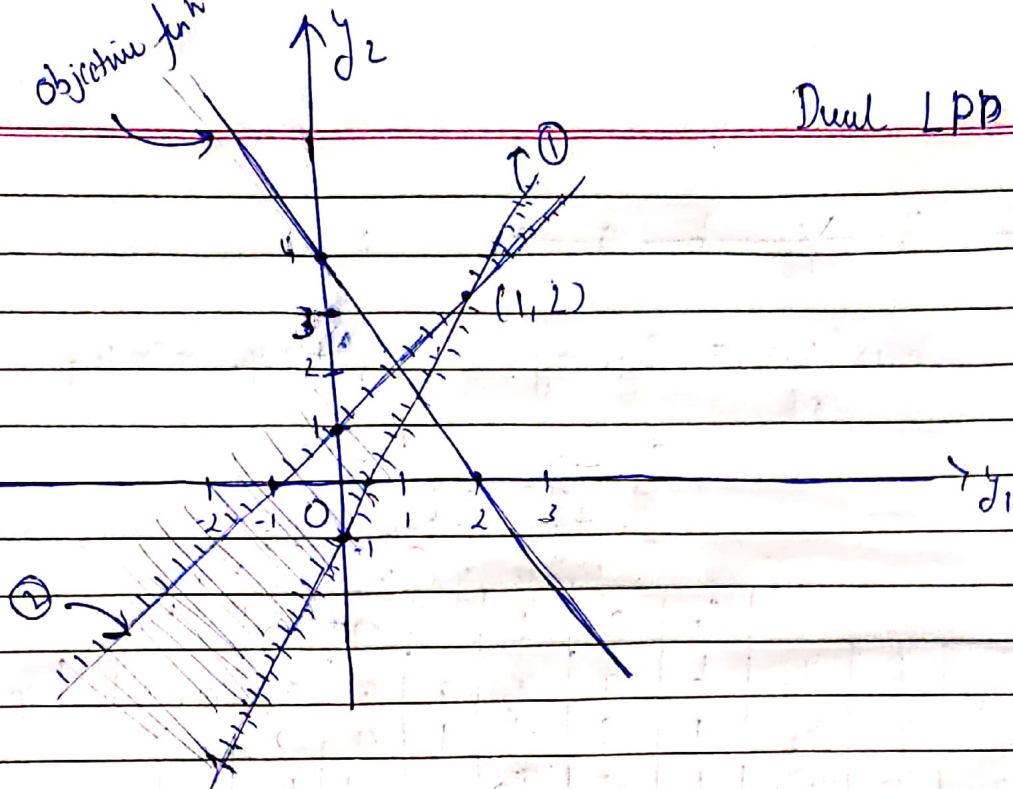 objective funⁿ
y2
Dual LPP
①
4
(1, 2)
3
2
1
-2 -1 0 1 2 3 y1
-1
②